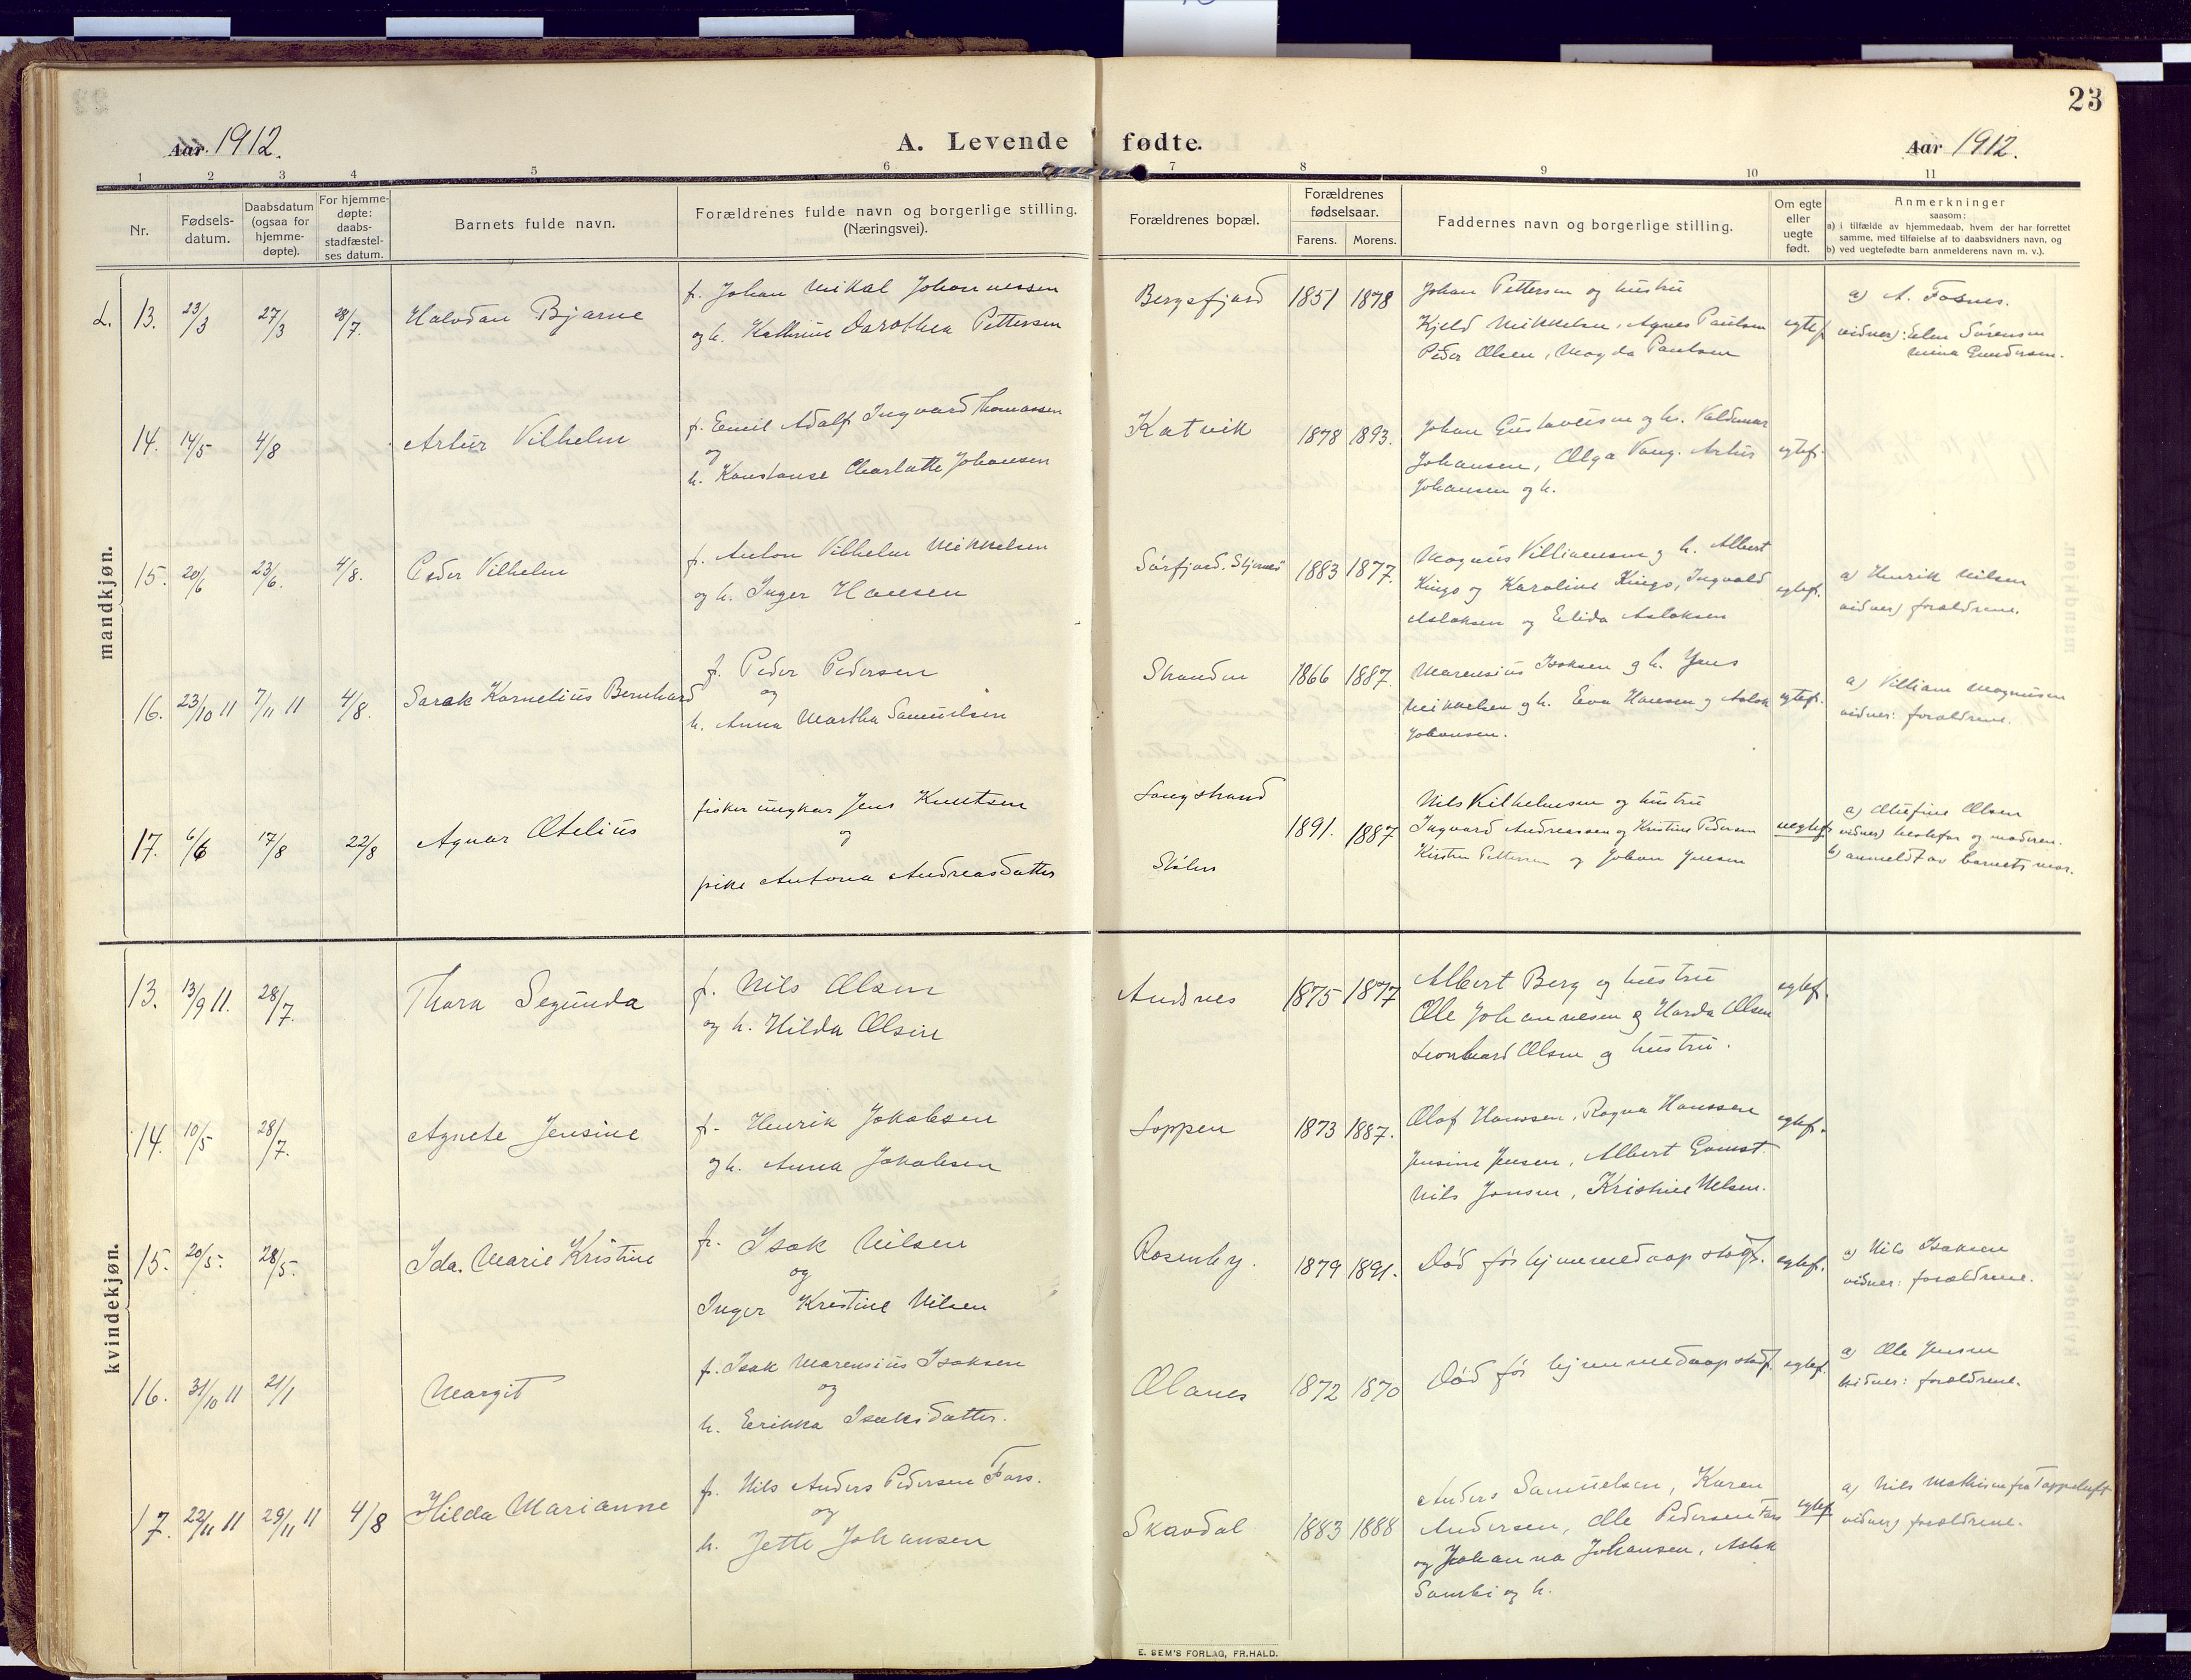 23
Aar 1912.
A. Levende fødte.
Aar 1912.
1 2 3 4 5 6 7 8 9 10 11
Nr.
Fødsels-
datum.
Daabsdatum
(ogsaa for
hjemme-
døpte).
For hjemme-
døpte:
daabs-
stadfæstel-
ses datum.
Barnets fulde navn.
Forældrenes fulde navn og borgerlige stilling.
(Næringsvei).
Forældrenes bopæl.
Forældrenes
fødselsaar.
Farens. Morens.
Faddernes navn og borgerlige stilling.
Om egte
eller
uegte
født.
Anmerkninger
saasom:
a) i tilfælde av hjemmedaab, hvem der har forrettet
samme, med tilføielse af to daabsvidners navn, og
b) ved uegtefødte barn anmelderens navn m. v.).
mandkjøn.
L. 13. 23/3 27/3 28/7. Halvdan Bjarne
f. Johan Mikal Johannessen
og h. Kathrine Dorothea Pettersen
Bergsfjord 1851 1878
Johan Pettersen og hustru
Kjeld Mikkelsen, Agnes Paulsen
Peder Olsen, Magda Paulsen
egtef
a) A. Fosnes.
vidner: Elen Sørensen
Mina Gundersen.
14. 14/5 4/8 Artur Vilhelm
f. Emil Adolf Ingvard Thomassen
og
h. Konstanse Charlotte Johansen
Katvik 1878 1893.
Johan Gustavsen og h. Valdemar
Johansen, Olga Vang. Artur
Johansen og h.
egtef.
15. 20/6 23/6. 4/8. Peder Vilhelm
f. Anton Vilhelm Mikkelsen
og h. Inger Hansen
Sørfjord, Stjernø 1883 1877.
Magnus Villiamsen og h. Albert
Kings og Karoline Kings, Ingvald
Aslaksen og Elida Aslaksen
egtef.
a) Henrik Nilsen
vidner) forældrene.
16. 23/10 11 7/11 11 4/8. Sarak Kornelius Bernhard
f. Peder Pedersen
og
h. Anna Martha Samuelsen
Stranden 1866 1887.
Marensius Isaksen og h. Jens
Mikkelsen og h. Eva Hansen og Aslak
Johansen.
egtef.
a) Villiam Magnusen
vidner: forældrene.
17. 6/6 17/8 22/8 Agnar Otelius
fisker ungkar Jens Knutsen
og
pike Antona Andreasdatter
Langstrand
1891. 1887
Nils Vilhelmsen og hustru
Ingvard Andreassen og Kristine Pedersen
Kirsten Pettersen og Johan Jensen
uegtef.
a) Olufine Olsen
vidner) bestefar og moderen.
b) anmeldt av barnets mor.
kvindekjøn.
13. 13/9 11. 28/7. Thora Segunda
f. Nils Olsen
og h. Hilda Olsen
Andsnes 1875 1877
Albert Berg og hustru
Ole Johannesen og Harda Olsen
Leonhard Olsen og hustru.
egtef.
14. 10/5 28/7. Agnete Jensine
f. Henrik Jakobsen
og h. Anna Jakobsen
Loppen 1873 1887.
Olaf Hanssen, Ragna Hanssen
Jensine Jensen, Albert Gamst.
Nils Jensen, Kristine Nilsen.
egtef.
15. 20/5. 28/5. Ida. Marie Kristine
f. Isak Nilsen
og
Inger Kristine Nilsen
Rosenby. 1879 1891.
Død før hjemmedaap stadf.
egtef.
a) Nils Isaksen
vidner: forældrene.
16. 31/10 11 21/1 Margit
f. Isak Marensius Isaksen
og
h. Erikka Isaksdatter.
Olanes 1872 1870
Død før hjemmedaap stadf.
egtef.
a) Ole Jensen
vidner: forældrene.
17. 22/11 11 29/11 11 4/8 Hilda Marianne
f. Nils Anders Pedersen Fors.
og
h. Jette Johansen
Skavdal 1883 1888
Anders Samuelsen, Karen
Andersen, Ole Pedersen Fors
og Johanna Johansen, Aslak
Sombi og h.
egtef
a) Nils Mathisen fra Tappeluft
vidner) forældrene.
E. SEM'S FORLAG, FR.HALD.